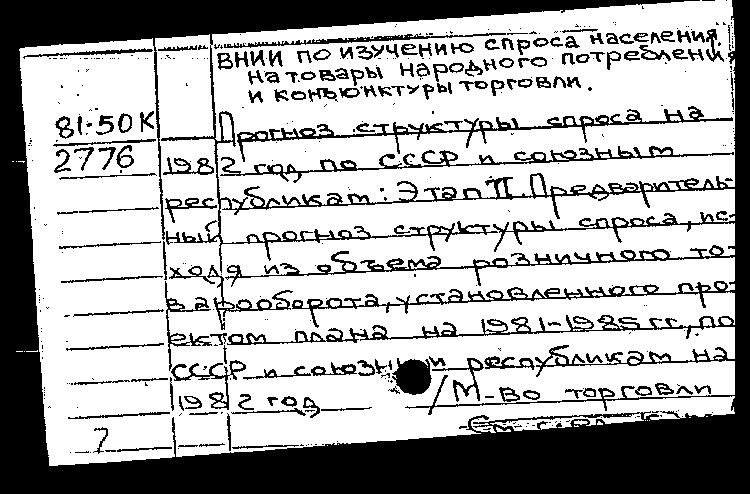 ВНИИ по изучению спроса населения
на товары народного потреблени
и конъюнктуры торговли.
81-50К
Прогноз структуры спроса на
2776
1982 год по СССР и союзным
республикам: Этап II. Предваритель-
ный прогноз структуры спроса, ис-
ходя из объема розничного то-
варооборота, установленного про-
ектом плана на 1981-1985 гг., по
СССР и союзным республикам на
1982 год
/М-во торговли
7